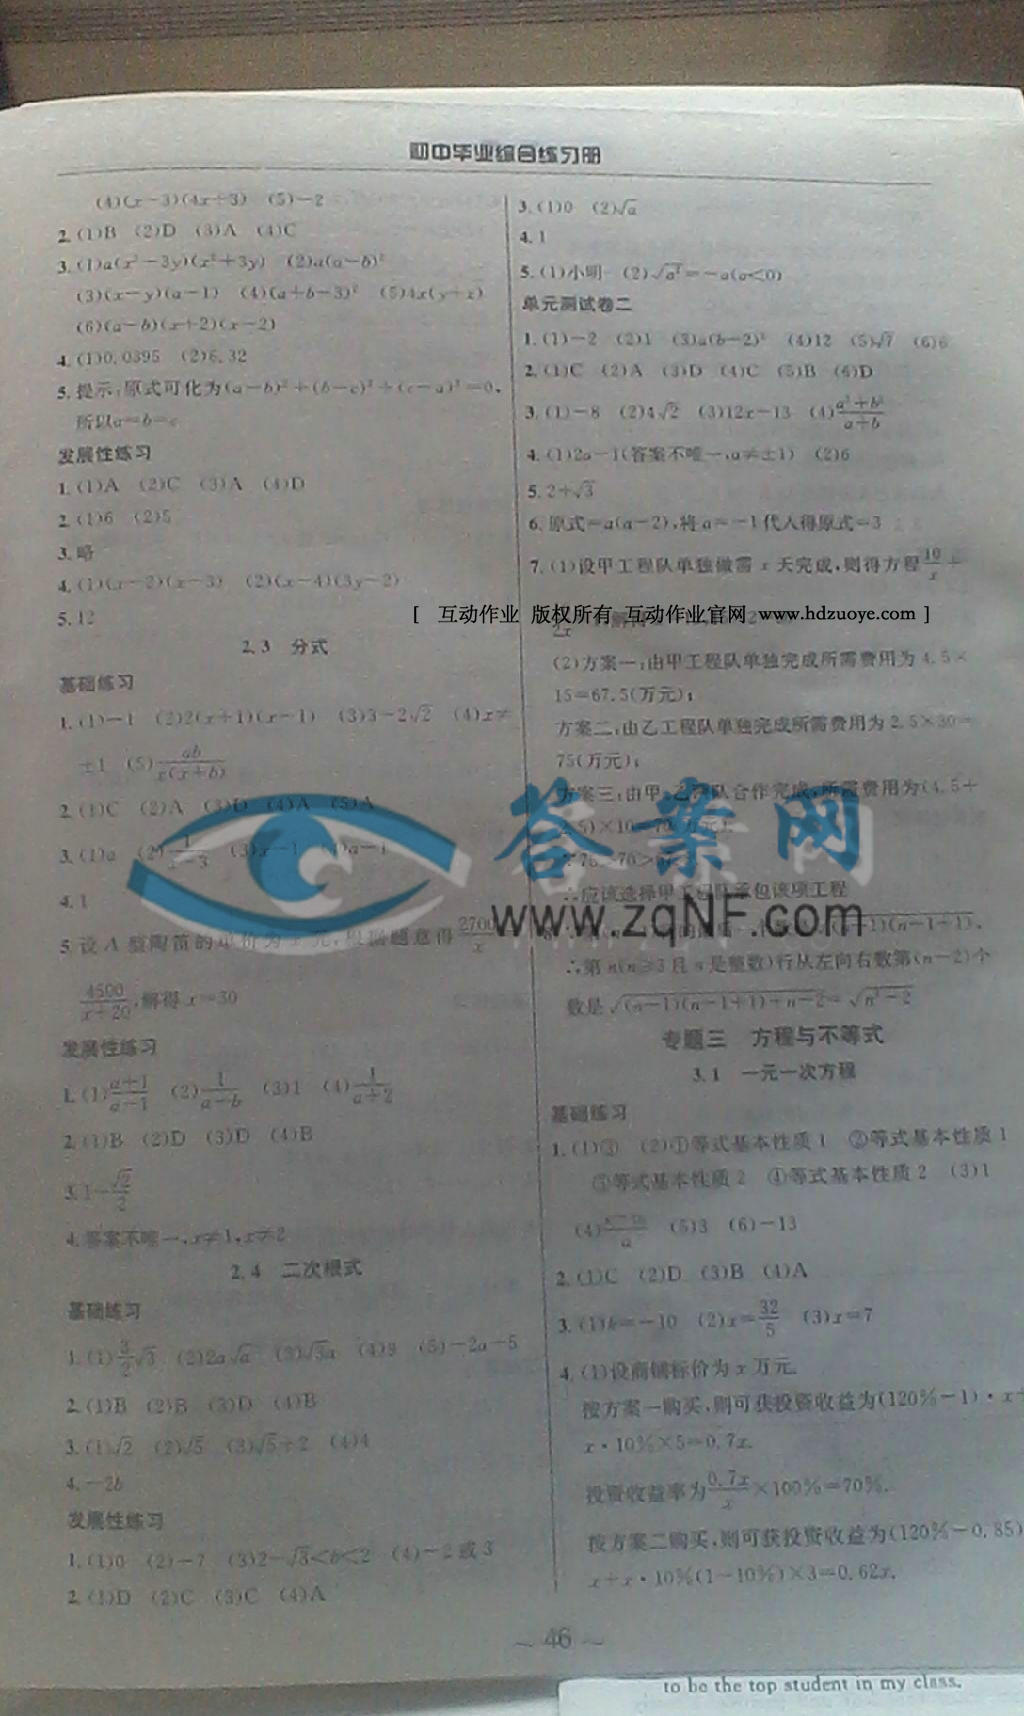 初中毕业综合练习册
(4)(x-3)(4x+3) (5)-2
2.(1)B (2)D (3)A (4)C
3.(1)a(x²-3y)(x²+3y) (2)a(a-b)²
(3)(x-y)(a-1) (4)(a+b-3)² (5)4x(y+z)
(6)(a-b)(x+2)(x-2)
4.(1)0.0395 (2)6.32
5.提示:原式可化为(a-b)²+(b-c)²+(c-a)²=0,
所以a=b=c
发展性练习
1.(1)A (2)C (3)A (4)D
2.(1)6 (2)5
3.略
4.(1)(x-2)(x-3) (2)(x-4)(3y-2)
5.12
2.3 分式
基础练习
1.(1)-1 (2)2(x+1)(x-1) (3)3-2√2 (4)x≠
±1 (5)ab/x(x+b)
2.(1)C (2)A (3)D (4)A (5)A
3.(1)a (2)1/x-3 (3)x-1 (4)a-1
4.1
5.设A型陶笛的单价为x元,根据题意得2700/x
4500/x+20,解得x=30
发展性练习
1.(1)a+1/a-1 (2)1/a-b (3)1 (4)1/a+2
2.(1)B (2)D (3)D (4)B
3.1-√2/2
4.答案不唯一,x≠1,x≠2
2.4 二次根式
基础练习
1.(1)3/2√3 (2)2a√a (3)√3a (4)9 (5)-2a-5
2.(1)B (2)B (3)D (4)B
3.(1)√2 (2)√5 (3)√5+2 (4)4
4.-2b
发展性练习
1.(1)0 (2)-7 (3)2-√3<b<2 (4)-2或3
2.(1)D (2)C (3)C (4)A
3.(1)0 (2)√a
4.1
5.(1)小明 (2)√a²=-a(a<0)
单元测试卷二
1.(1)-2 (2)1 (3)a(b-2)² (4)12 (5)√7 (6)6
2.(1)C (2)A (3)D (4)C (5)B (6)D
3.(1)-8 (2)4√2 (3)12x-13 (4)a²+b²/a+b
4.(1)2a-1(答案不唯一,a≠±1) (2)6
5.2+√3
6.原式=a(a-2),将a=-1代入得原式=3
7.(1)设甲工程队单独做需x天完成,则得方程10/x+
[ 互动作业 版权所有 互动作业官网 www.hdzuoye.com ]
2x
(2)方案一:由甲工程队单独完成所需费用为4.5×
15=67.5(万元);
方案二:由乙工程队单独完成所需费用为2.5×30=
75(万元);
方案三:由甲、乙两队合作完成,所需费用为(4.5+
2.5)×10=70(万元).
∵75>70>67.5
∴应该选择甲工程队承包该项工程
答案网
www.zqNF.com
(n-1+1),
∴第n(n≥3且n是整数)行从左向右数第(n-2)个
数是√(n-1)(n-1+1)+n-2=√n²-2
专题三 方程与不等式
3.1 一元一次方程
基础练习
1.(1)③ (2)①等式基本性质1 ②等式基本性质1
③等式基本性质2 ④等式基本性质2 (3)1
(4) (5)3 (6)-13
2.(1)C (2)D (3)B (4)A
3.(1)k=-10 (2)x=32/5 (3)x=7
4.(1)设商铺标价为x万元.
按方案一购买,则可获投资收益为(120%-1)·x+
x·10%×5=0.7x.
投资收益率为0.7x/x×100%=70%.
按方案二购买,则可获投资收益为(120%-0.85)
x+x·10%(1-10%)×3=0.62x.
~ 46 ~
to be the top student in my class.